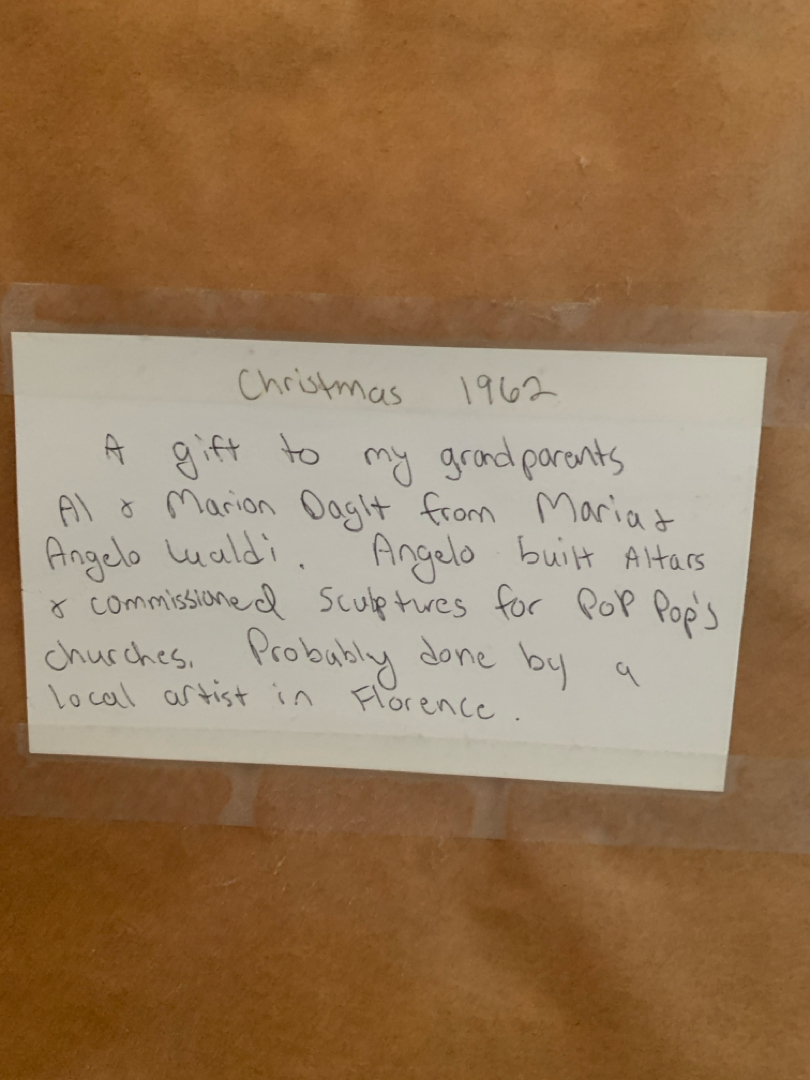 Christmas 1962
A gift to my grandparents
Al & Marion Dagit from Maria &
Angelo Lualdi. Angelo built Altars
& commissioned sculptures for Pop Pop's
churches. Probably done by a
local artist in Florence.